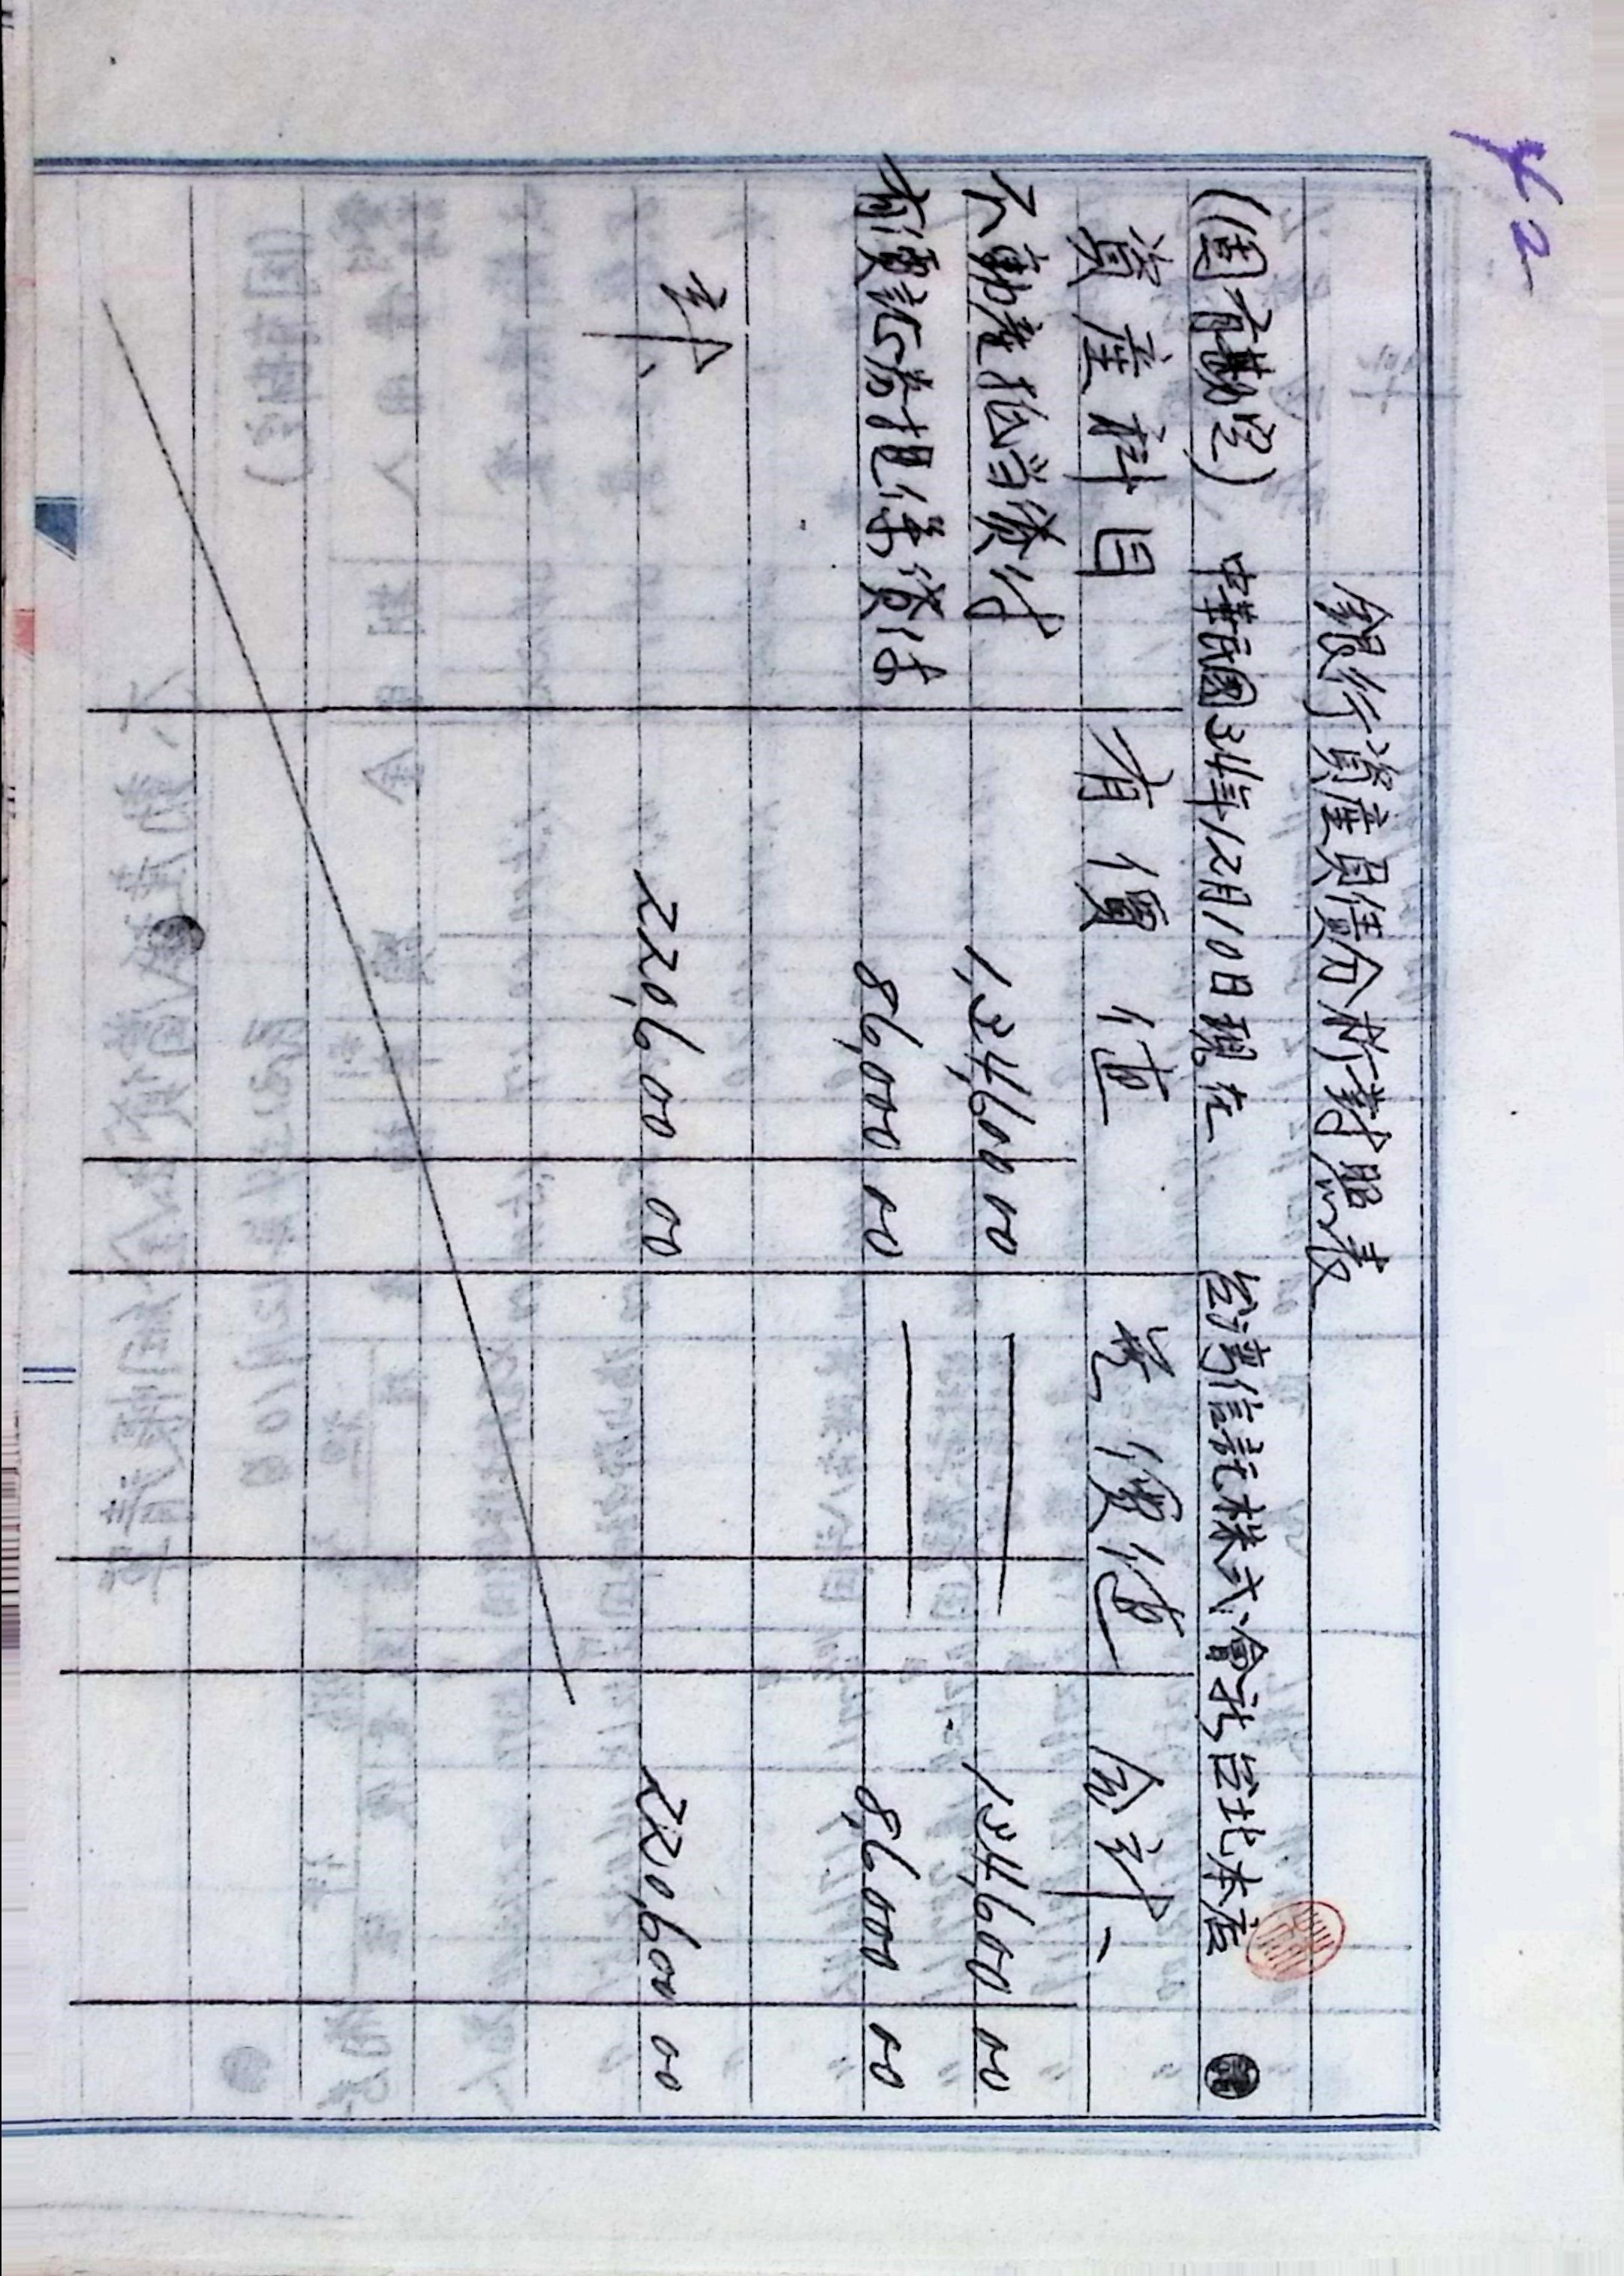 銀行資產負債分析對照表
(固有勘定) 中華民國34年12月10日現在 台湾信託株式會社台北本店
資產科目 有價值 無價值 合計
不動產抵当貸付 134,600 00 134,600 00
有價証券担保貸付 86,000 00 86,000 00
計 220,600 00 220,600 00